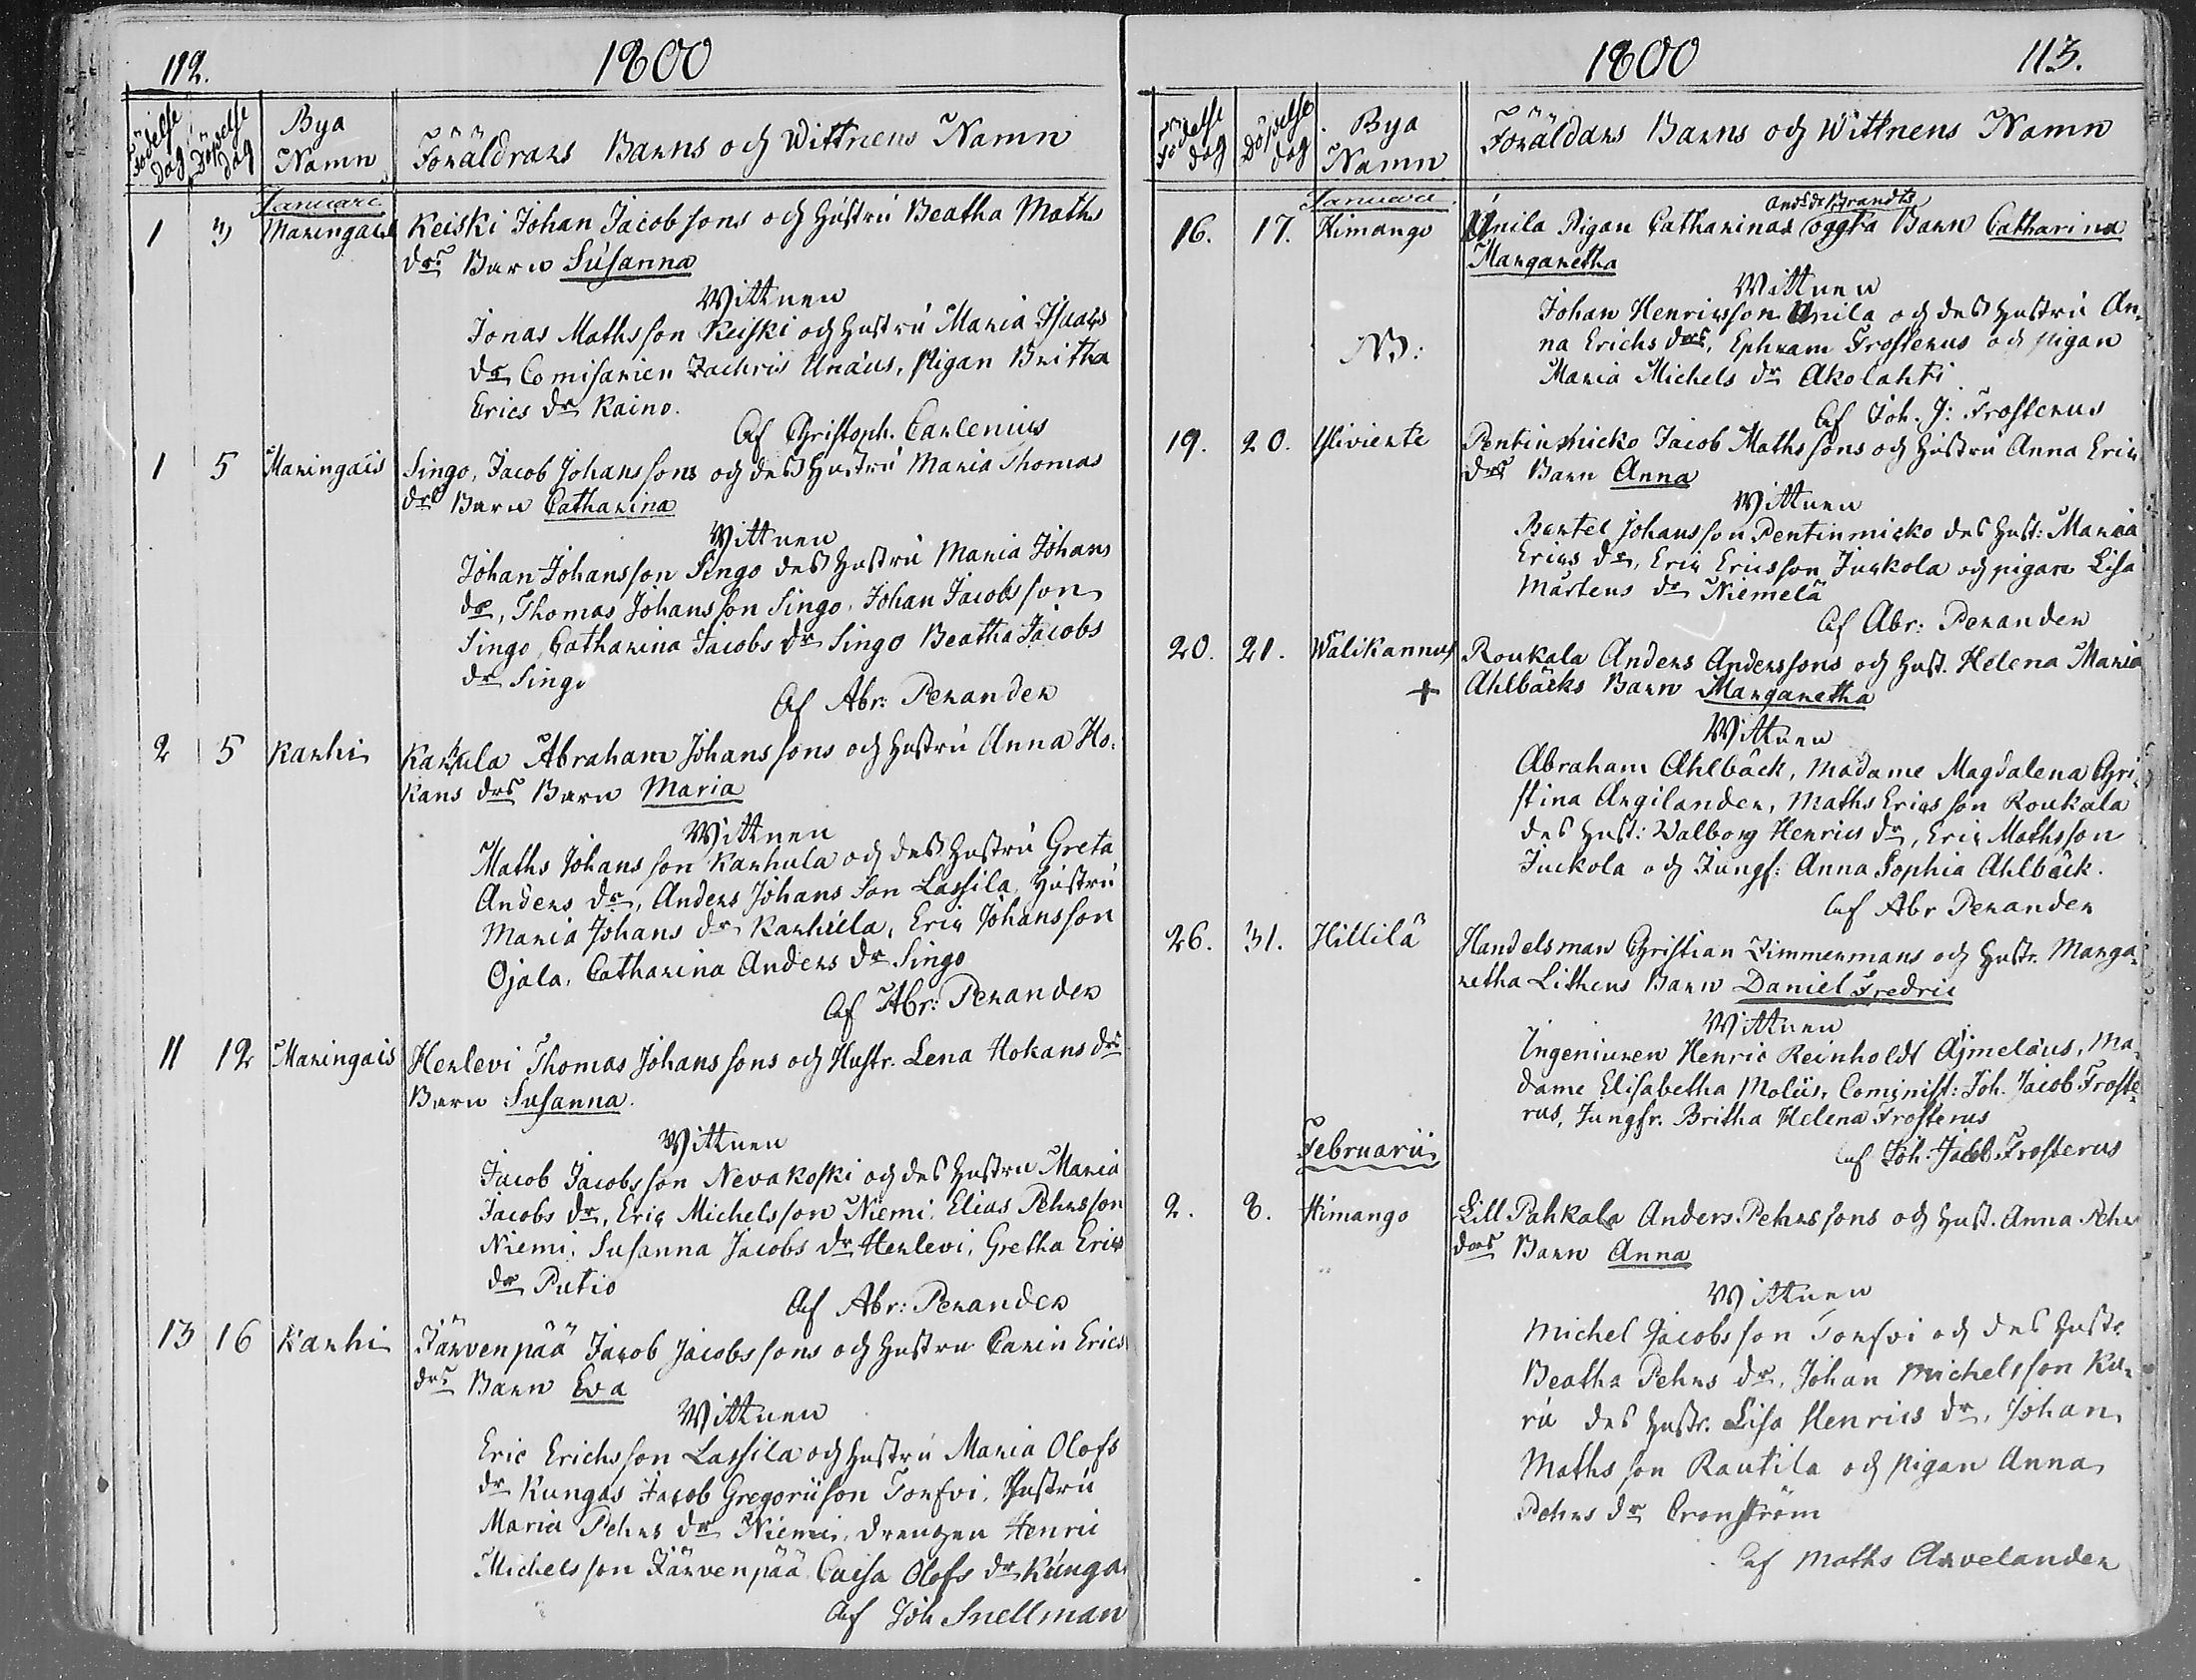 112.
1800
Födelse dag
Döpelse dag
Bya Namn
Föräldrars Barns och Wittnens Namn
Januarii
1 3 Maringais Keiski Johan Jacobsons och Hustru Beatha Maths
drs Barn Susanna
Wittnen
Jonas Mathsson Keiski och hustru Maria Isaacs
dr Comisarien Zachris Unæus, Pigan Britha
Erics dr Raino.
Af Christoph. Carlenius
1 5 Maringais Singo, Jacob Johanssons och dess Hustru Maria Thomas
drs Barn Catharina
Wittnen
Johan Johansson Singo dess Hustru Maria Johans
dr, Thomas Johansson Singo, Johan Jacobsson
Singo, Catharina Jacobs dr Singo Beatha Jacobs
dr Singo
Af Abr: Perander
2 5 Karhi Karhula Abraham Johanssons och hustru Anna Ho-
kans drs Barn Maria
Wittnen
Maths Johansson Karhula och dess hustru Greta
Anders dr, Anders Johansson Lassila, Hustru
Maria Johans dr Karhula, Eric Johansson
Ojala, Catharina Anders dr Singo
Af Abr: Perander
11 12 Maringais Herlevi Thomas Johanssons och Hustr. Lena Hokans drs
Barn Susanna.
Wittnen
Jacob Jacobsson Nevakoski och des hustru Maria
Jacobs dr, Eric Michelsson Niemi, Elias Pehrsson
Niemi, Susanna Jacobs dr Herlevi, Gretha Erics
dr Putio
Af Abr: Perander
13 16 Karhi Järvenpää Jacob Jacobssons och hustru Carin Erics
drs Barn Eva
Wittnen
Eric Erichsson Lassila och hustru Maria Olofs
dr Kungas Jacob Gregoriison Torfvi, Hustru
Maria Pehrs dr Niemi, Drengen Henric
Michelsson Järvenpää Caisa Olofs dr Kunga
Af Joh Snellman
1800
113.
Födelse dag
Döpelse dag
Bya Namn
Föräldars Barns och Wittnens Namn
Januarii
Brandts
16. 17. Himango Unila Pigan Catharinas oggta Barn Catharina
Margaretha
Wittnen
Johan Henricsson Unila och dess hustru An-
NB: na Erichs drs, Ephram Frosterus och pigan
Maria Michels dr Akolahti
Af Joh. J: Frosterus
19. 20. Yliviirte Pentinmicko Jacob Mathssons och Hustru Anna Eric
drs Barn Anna
Wittnen
Bertel Johansson Pentinmicko des hust: Maria
Erics dr, Eric Ericsson Juckola och pigan Lisa
Mårtens dr Niemelä
Af Abr: Perander
20. 21. Wälikannus Roukala Anders Anderssons och hust. Helena Maria
+ Ahlbäcks Barn Margaretha
Wittnen
Abraham Ahlbäck, Madame Magdalena Chri-
stina Argilander, Maths Ericsson Roukala
des hust: Walborg Henrics dr, Eric Mathsson
Juckola och Jungf: Anna Sophia Ahlbäck.
Af Abr Perander
26. 31. Hillilä Handelsman Christian Zimmermans och hustr. Marga-
retha Lithens Barn Daniel Fredric
Wittnen
Ingenieuren Henric Reinholdt Ajmelæus, Ma-
dame Elisabetha Moliis, Cominist: Joh. Jacob Froste-
rus, Jungfr. Britha Helena Frosterus
af Joh: Jacob Frosterus
Februarii
2. 8. Himango Lill Pahkala Anders Pehrssons och hust. Anna Pehr
drs Barn Anna
Wittnen
Michel Jacobsson Torfvi och des hustr
Beatha Pehrs dr, Johan Michelsson Ku-
ru des hustr. Lisa Henrics dr, Johan
Mathsson Rautila och pigan Anna
Pehrs dr Cronström
af Maths Arvelander